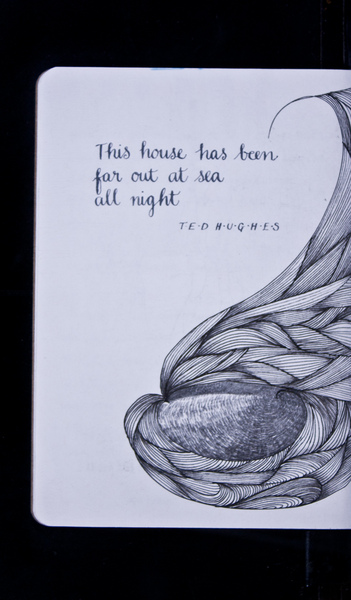 This house has been
far out at sea
all night
TED H·U·G·H·E·S